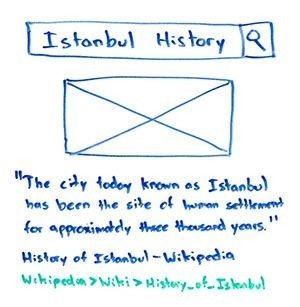 Istanbul History
"The city today known as Istanbul
has been the site of human settlement
for approximately three thousand years."
History of Istanbul - Wikipedia
Wikipedia > Wiki > History_of_Istanbul